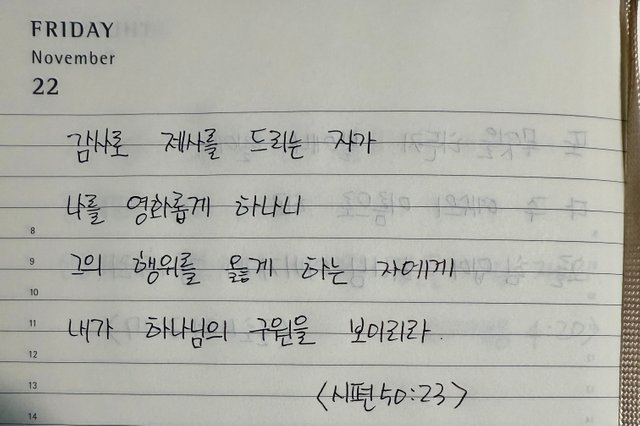 FRIDAY
November
22
감사로 제사를 드리는 자가
나를 영화롭게 하나니
8
그의 행위를 옳게 하는 자에게
9
10
내가 하나님의 구원을 보이리라.
11
12
<시편50:23>
13
14